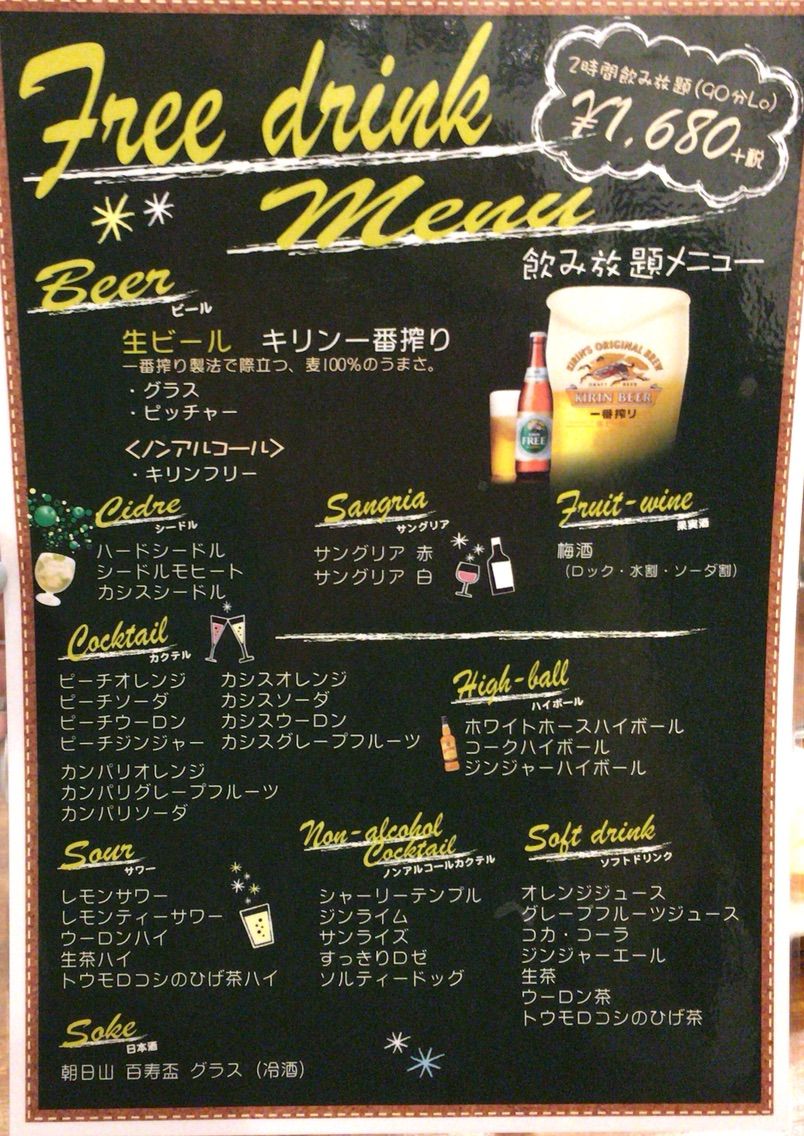 Free drink
Menu
2時間飲み放題(90分Lo)
¥1,680
+税
飲み放題メニュー
Beer
ビール
生ビール キリン一番搾り
一番搾り製法で際立つ、麦100%のうまさ。
・グラス
・ピッチャー
<ノンアルコール>
・キリンフリー
KIRIN'S ORIGINAL BREW
DRAFT BEER
KIRIN BEER
一番搾り
FREE
Cidre
シードル
ハードシードル
シードルモヒート
カシスシードル
Sangria
サングリア
サングリア 赤
サングリア 白
Fruit-wine
果実酒
梅酒
(ロック・水割・ソーダ割)
Cocktail
カクテル
ピーチオレンジ カシスオレンジ
ピーチソーダ カシスソーダ
ピーチウーロン カシスウーロン
ピーチジンジャー カシスグレープフルーツ
カンパリオレンジ
カンパリグレープフルーツ
カンパリソーダ
High-ball
ハイボール
ホワイトホースハイボール
コークハイボール
ジンジャーハイボール
Sour
サワー
レモンサワー
レモンティーサワー
ウーロンハイ
生茶ハイ
トウモロコシのひげ茶ハイ
Non-alcohol
Cocktail
ノンアルコールカクテル
シャーリーテンプル
ジンライム
サンライズ
すっきりロゼ
ソルティードッグ
Soft drink
ソフトドリンク
オレンジジュース
グレープフルーツジュース
コカ・コーラ
ジンジャーエール
生茶
ウーロン茶
トウモロコシのひげ茶
Soke
日本酒
朝日山 百寿盃 グラス (冷酒)